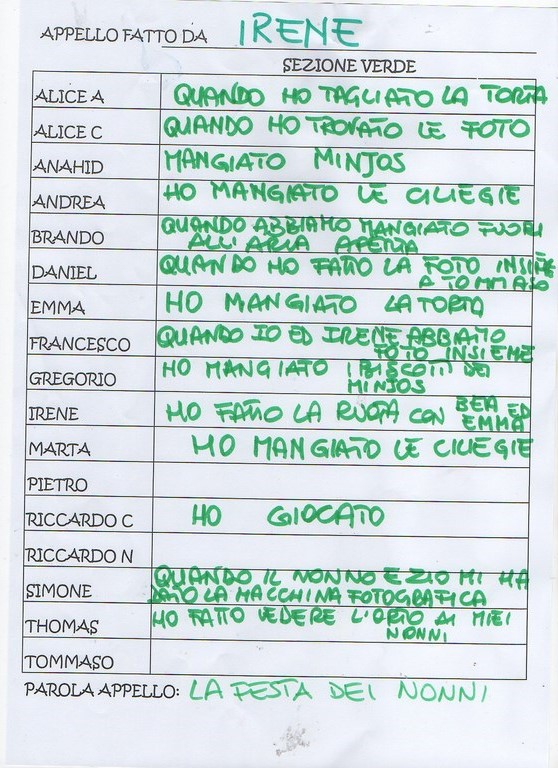 APPELLO FATTO DA IRENE
SEZIONE VERDE
ALICE A QUANDO HO TAGLIATO LA TORTA
ALICE C QUANDO HO TROVATO LE FOTO
ANAHID MANGIATO MINJOS
ANDREA HO MANGIATO LE CILIEGIE
BRANDO QUANDO ABBIAMO MANGIATO FUORI
ALL'ARIA APERTA
DANIEL QUANDO HO FATTO LA FOTO INSIEME
A TOMMASO
EMMA HO MANGIATO LA TORTA
FRANCESCO QUANDO IO ED IRENE ABBIATO
FOTO INSIEME
GREGORIO HO MANGIATO I BISCOTTI DEI
MINJOS
IRENE HO FATTO LA RUOTA CON BEA ED
EMMA
MARTA HO MANGIATO LE CILIEGIE
PIETRO
RICCARDO C HO GIOCATO
RICCARDO N
SIMONE QUANDO IL NONNO EZIO MI HA
DATO LA MACCHINA FOTOGRAFICA
THOMAS HO FATTO VEDERE L'ORTO AI MIEI
NONNI
TOMMASO
PAROLA APPELLO: LA FESTA DEI NONNI